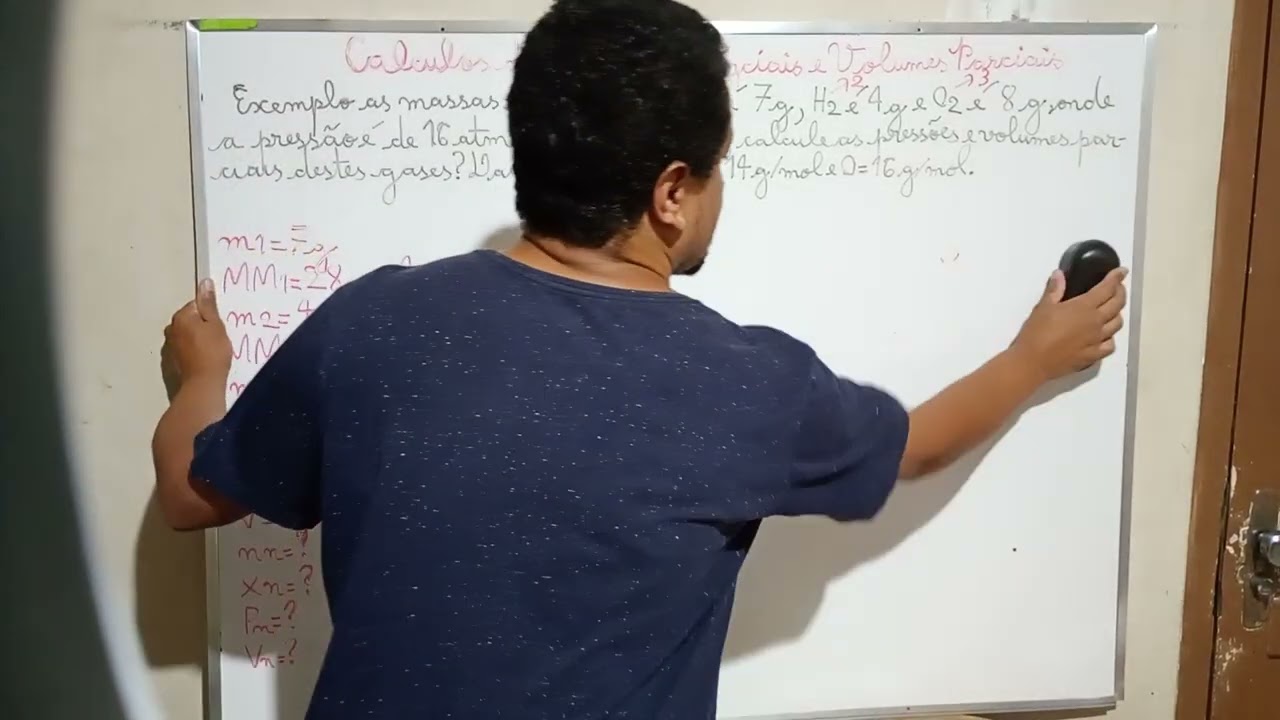 Calculos ciais e Volumes Parciais
n2 n3
Exemplo as massas 7g, H2 é 4g e O2 é 8g, onde
a pressão é de 16 atm calcule as pressões e volumes par-
ciais destes gases? 14g/mol e O=16g/mol.
m1=
MM1=2
m2=4
MM
nn=?
xn=?
Pn=?
Vn=?